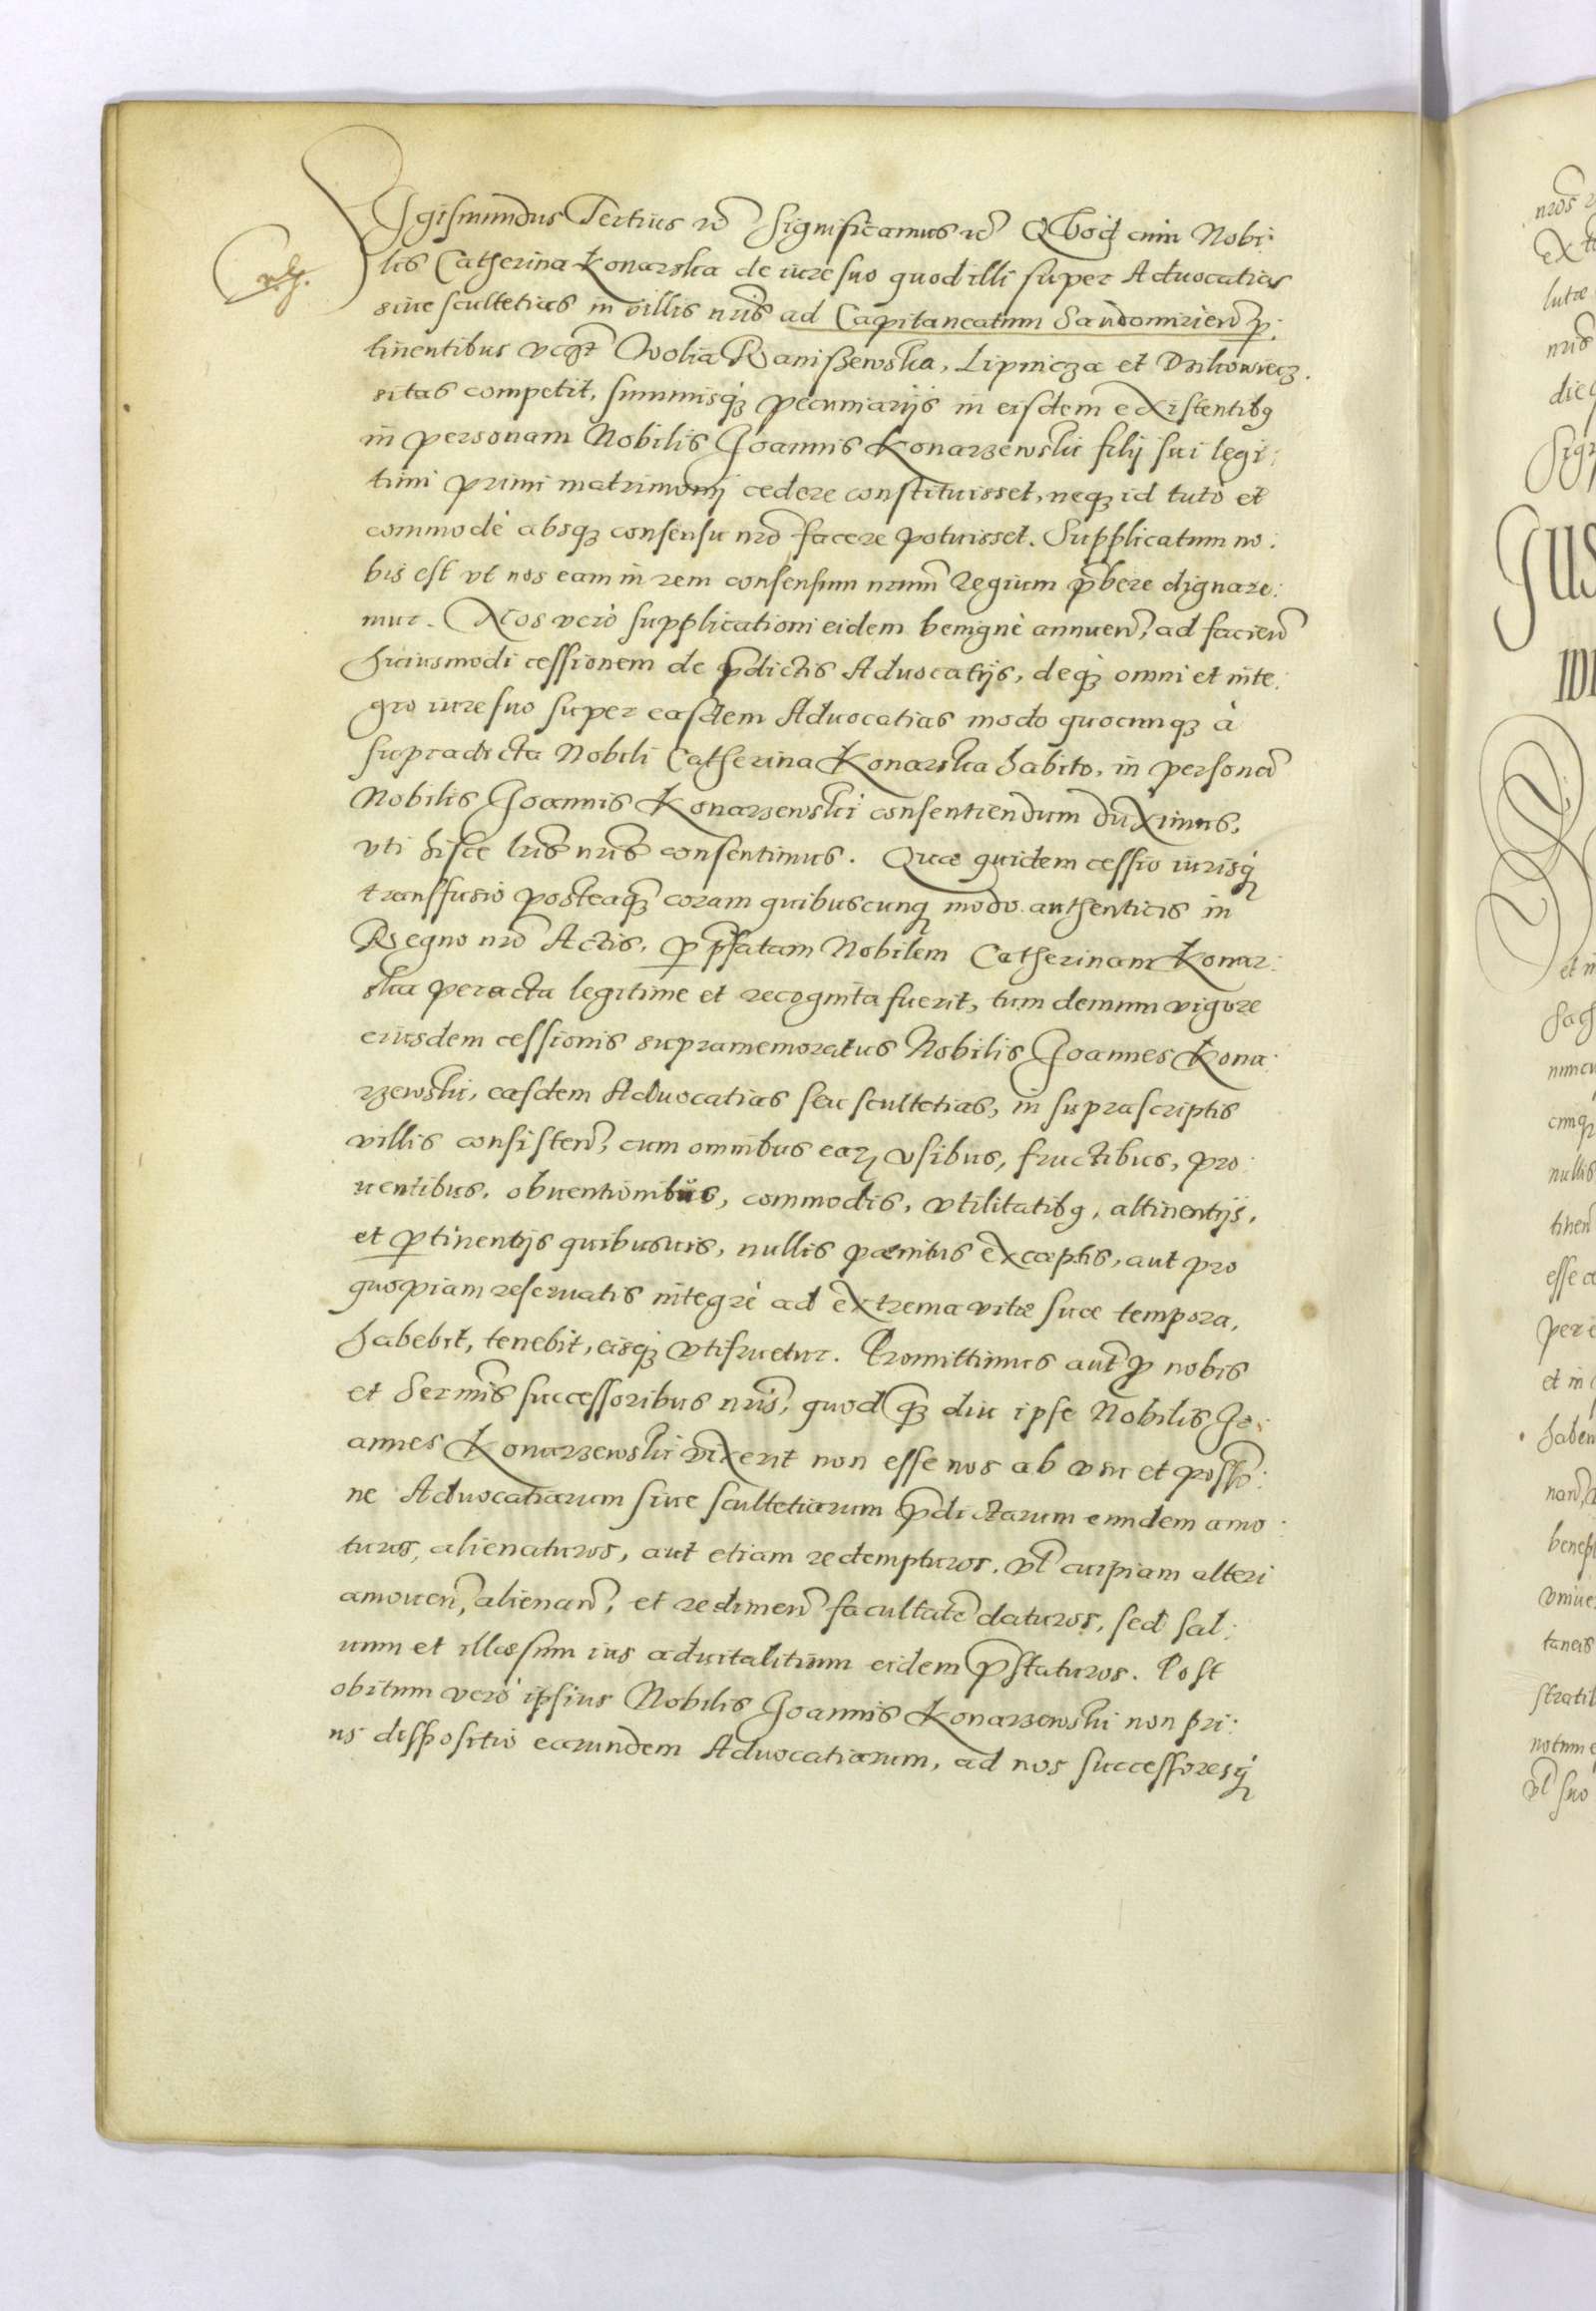 Sigismundus Tertius etc̃ Significamus etc̃ Quod cum Nobi:
lis Catherina Konarska de iure suo quod illi super Aduocatias
siue scultetias in villis nr̃is ad Capitaneatum Sandomirieñ p̱:
tinentibus vcꝫt Wolia Raniszewska, Lipnicza et Dzikowiecz.
sitas competit, summisq́ꝫ pecuniarijs in eisdem existentibꝯ
in personam Nobilis Joannis Konarzewski filij sui legi:
timi primi matrimonij cedere constituisset, neqꝫ id tutò et
commodè absqꝫ consensu nr̃o facere potuisset. Supplicatum no:
bis est vt nos eam in rem consensum nr̃um Regium p̃bere dignare:
mur. Nos verò supplicationi eidem benignè annueñ, ad facieñ
huiusmodi cessionem de p̃dictis Aduocatijs, deq́ꝫ omni et inte:
gro iure suo super easdem Aduocatias modo quocunqꝫ à
supradicta Nobili Catherina Konarska habito, in personã
Nobilis Joannis Konarzewski consentiendum duximus,
vti hisce lr̃is nr̃is consentimus. Quæ quidem cessio iurisq́ꝫ
transfusio posteaq̃ꝫ coram quibuscunqꝫ modo authenticis in
Regno nr̃o Actis, p̱ p̃fatam Nobilem Catherinam Konar:
ska peracta legitime et recognita fuerit, tum demum vigore
eiusdem cessionis supramemoratus Nobilis Joannes Kona:
rzewski, easdem Aduocatias seu scultetias, in suprascriptis
villis consisteñ, cum omnibus eaꝝ vsibus, fructibus, pro:
uentibus, obuentionibus, commodis, vtilitatibꝯ, attinentijs,
et p̱tinentijs quibusuis, nullis pænitus exceptis, aut pro
quopiam reseruatis integrè ad extrema vitæ suæ tempora,
habebit, tenebit, eisq́ꝫ vtifruetur. Promittimus aut̃ p̱ nobis
et Serm̃is successoribus nr̃is, quod q̃ꝫ diu ipse Nobilis Jo:
annes Konarzewski vixerit non esse nos ab vsu et posso͂:
ne Aduocatiarum siue scultetiarum p̃dictarum eundem amo:
turos, alienaturos, aut etiam redempturos, vl̃ cuipiam alteri
amoueñ, alienañ, et redimeñ facultatẽ daturos, sed sal:
uum et illæsum ius aduitalitium eidem p̃staturos. Post
obitum verò ipsius Nobilis Joannis Konarzewski non pri:
us dispositio earundem Aduocatiarum, ad nos successoresq́ꝫ